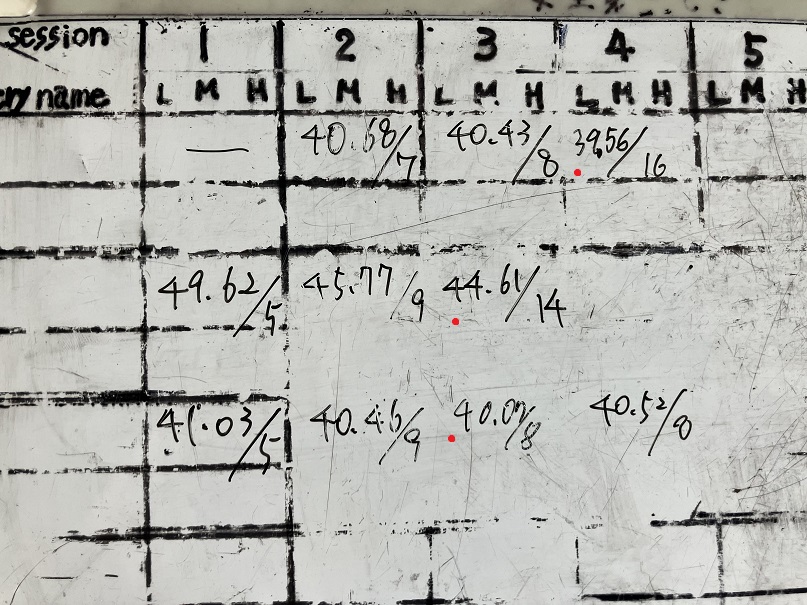 session 1 2 3 4 5
name L M H L M H L M H L M H L M H
— 40.68/7 40.43/8 39.56/16
49.62/5 45.77/9 44.61/14
41.03/5 40.46/9 40.52/8